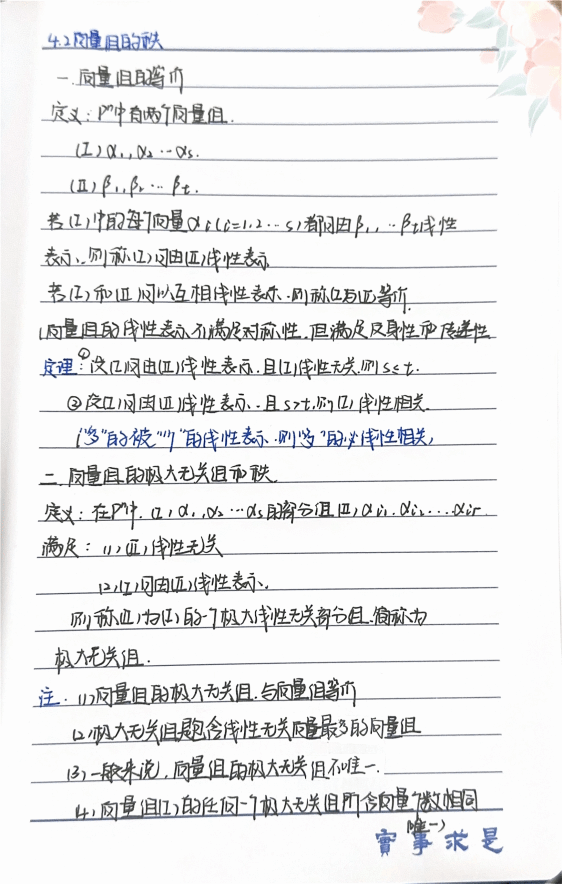 4.2向量组的秩
一.向量组的等价
定义：Pⁿ中有两个向量组.
(I) α₁,α₂…αs.
(II) β₁,β₂…βt.
若(I)中的每个向量αi(i=1.2…s)都可由β₁,…βt线性
表示.则称(I)可由(II)线性表示
若(I)和(II)可以互相线性表示.则称(I)与(II)等价.
(向量组的线性表示不满足对称性,但满足反身性和传递性
定理：①设(I)可由(II)线性表示.且(I)线性无关.则s≤t.
②设(I)可由(II)线性表示.且s>t.则(I)线性相关.
("多"的被"少"的线性表示.则"多"的必线性相关)
二.向量组的极大无关组和秩.
定义：在Pⁿ中.(I)α₁.α₂…αs的部分组(II)αi₁.αi₂...αir
满足：(1)(II)线性无关
(2)(I)可由(II)线性表示.
则称(II)为(I)的一个极大线性无关部分组.简称为
极大无关组.
注.(1)向量组的极大无关组.与向量组等价
(2)极大无关组是包含线性无关向量最多的向量组
(3)一般来说.向量组的极大无关组不唯一.
(4)向量组(I)的任何一个极大无关组所含向量个数相同
(唯一)
實事求是